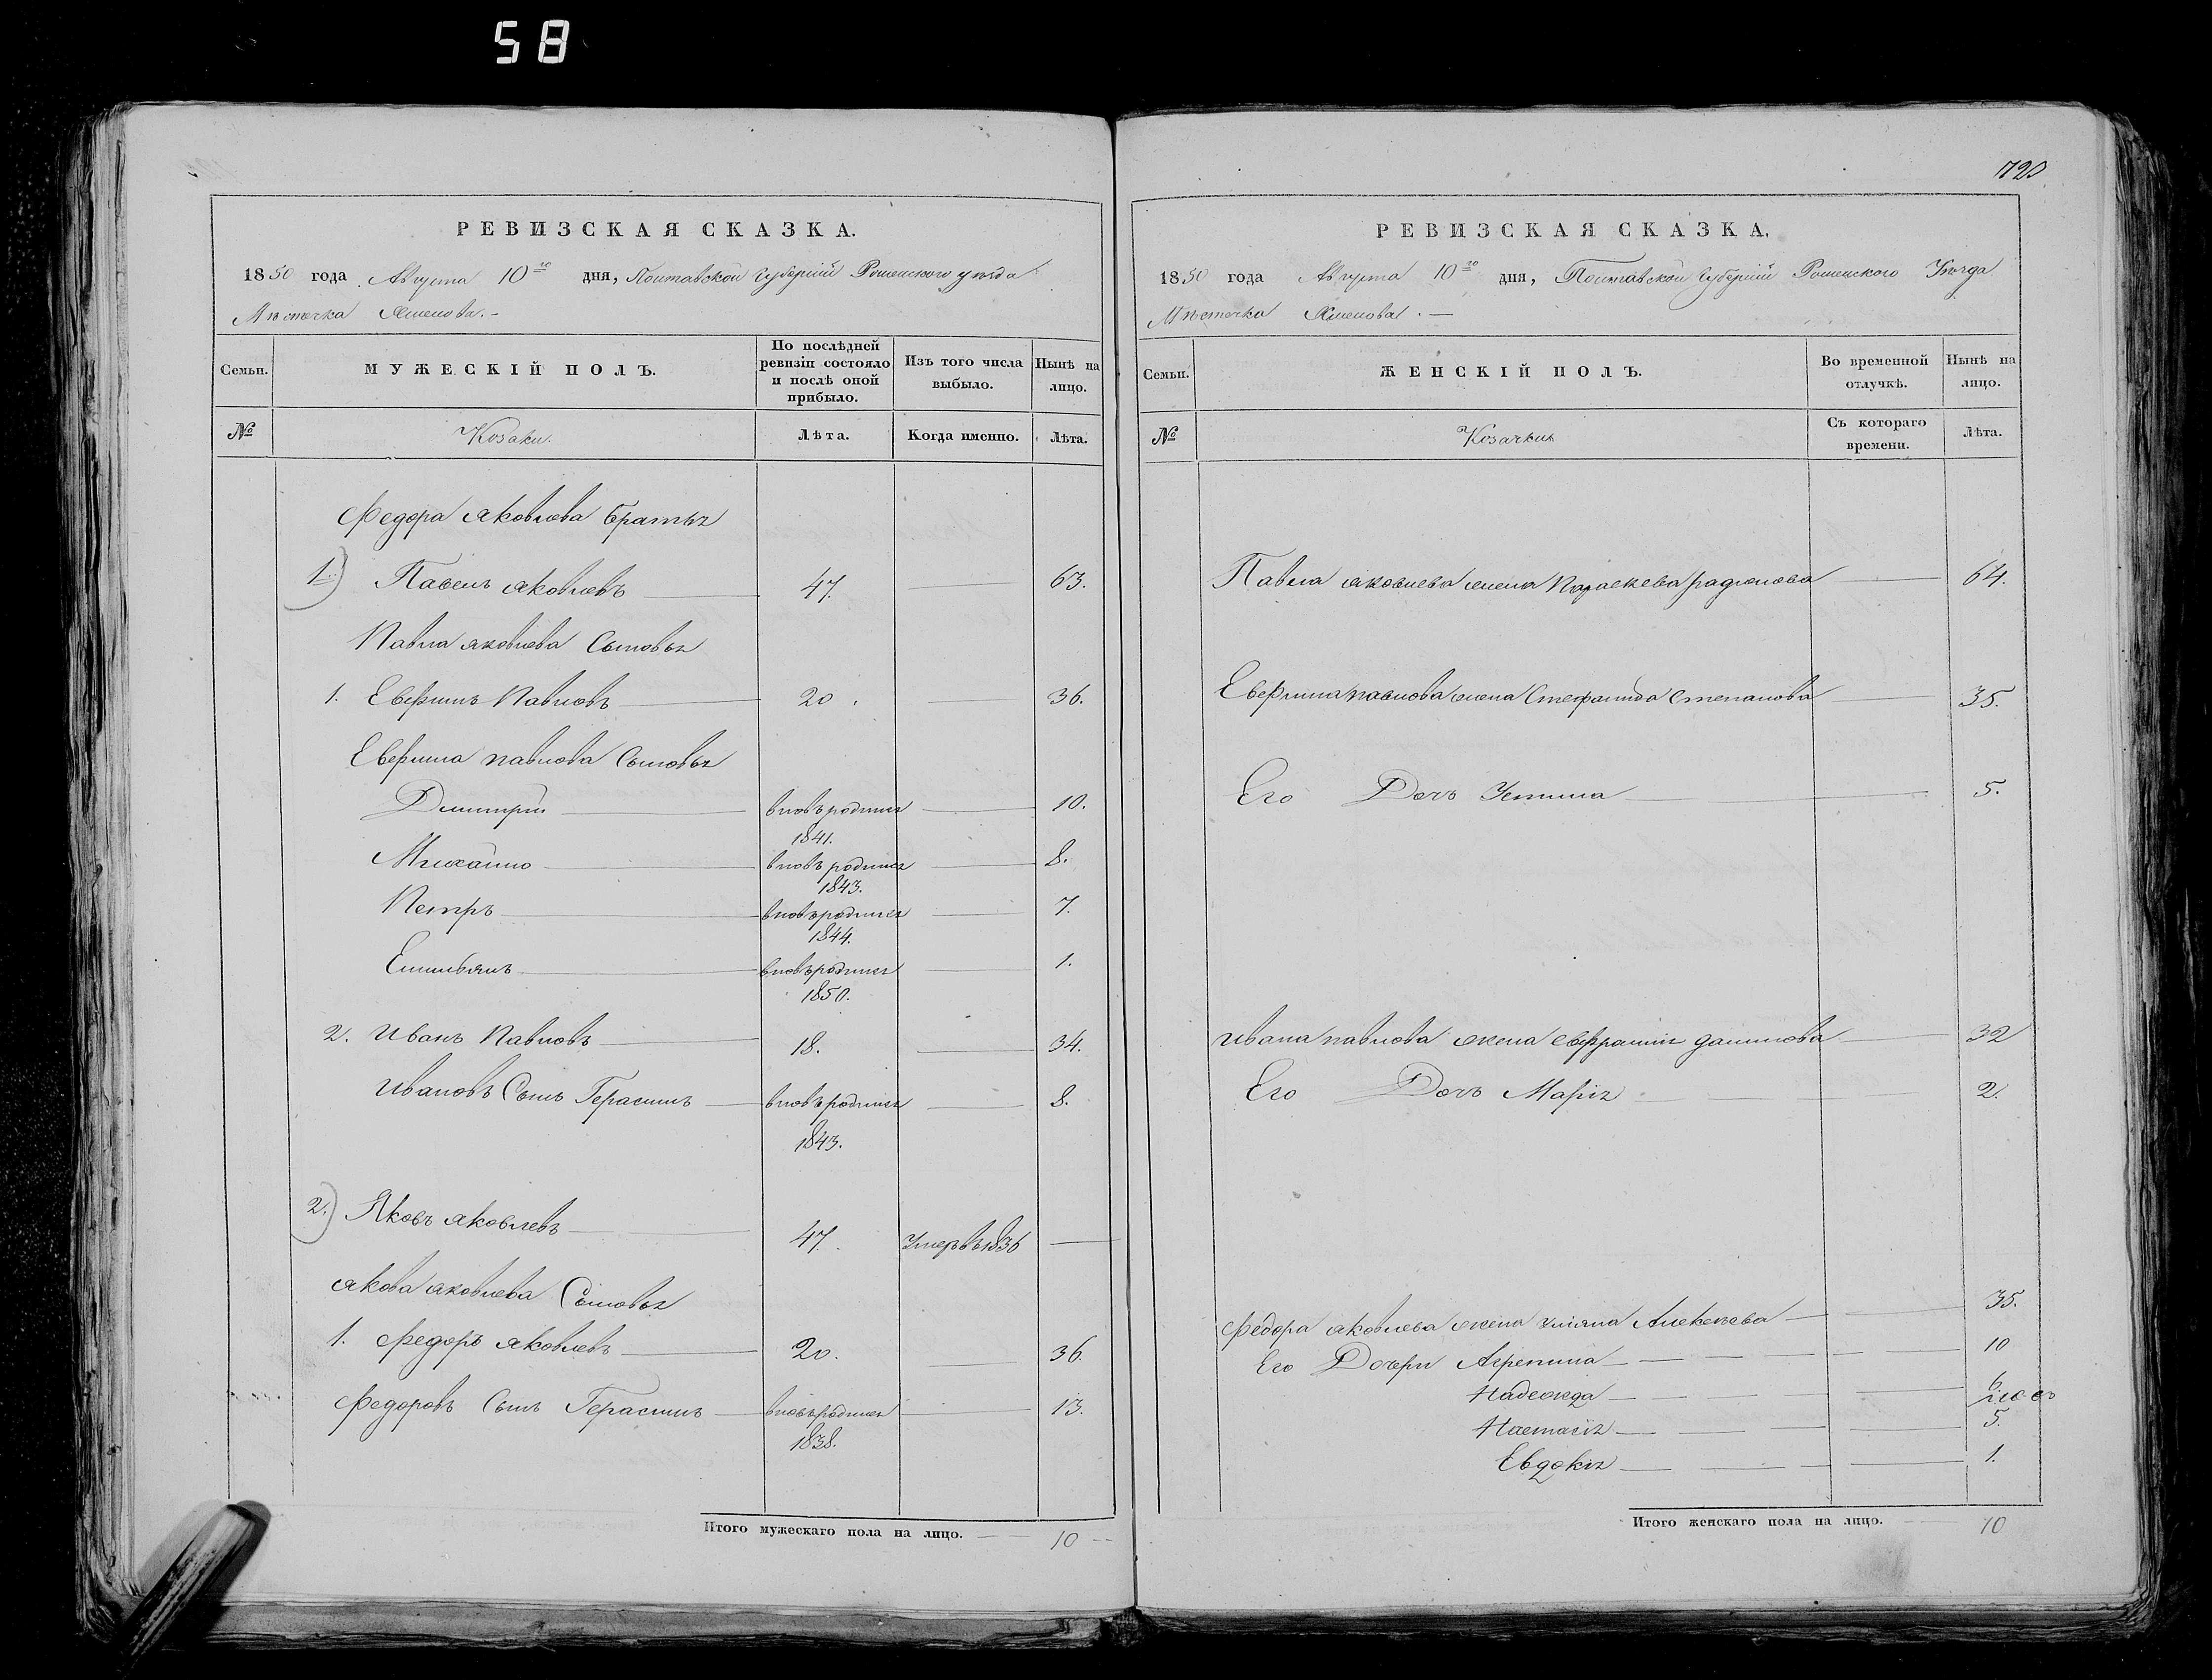 58
РЕВИЗСКАЯ СКАЗКА.
1850 года Августа 10го дня, Полтавской Губерніи Роменского уезда
Мѣстечка
Семьи.
МУЖЕСКІЙ ПОЛЪ.
По послѣдней ревизіи состояло и послѣ оной прибыло.
Изъ того числа выбыло.
Нынѣ на лицо.
№
Козаки.
Лѣта.
Когда именно.
Лѣта.
Федора Яковлева братья
1) Павелъ Яковлевъ 47. 63.
Павла Яковлева Сыновья
1. Павловъ 20. 36.
Павлова Сыновья
Дмитрій вновь родился 1841. 10.
Михайло вновь родился 1843. 8.
Петръ вновь родился 1844. 7.
Емильянъ вновь родился 1850. 1.
2. Иванъ Павловъ 18. 34.
Ивановъ Сынъ Герасимъ вновь родился 1843. 8.
2) Яковъ Яковлевъ 47. Умеръ въ 1836
Якова Яковлева Сыновья
1. Федоръ Яковлевъ 20. 36.
Федоровъ Сынъ Герасимъ вновь родился 1838. 13.
Итого мужескаго пола на лицо. 10
720
РЕВИЗСКАЯ СКАЗКА.
1850 года Августа 10го дня, Полтавской Губерніи Роменского Уѣзда
Мѣстечка
Семьи.
ЖЕНСКІЙ ПОЛЪ.
Во временной отлучкѣ.
Нынѣ на лицо.
№
Козачки
Съ котораго времени.
Лѣта.
Павла Яковлева жена Параскева Радионова 64.
Павлова жена Стефанида Степанова 35.
Его Дочь Устина 5.
Ивана Павлова жена Данилова 32
Его Дочь Марія 2.
Федора Яковлева жена Уліяна Алексѣева 35.
Его Дочери Агрепина 10
Надежда 6
Настасія 5.
Евдокія 1.
Итого женскаго пола на лицо. 10